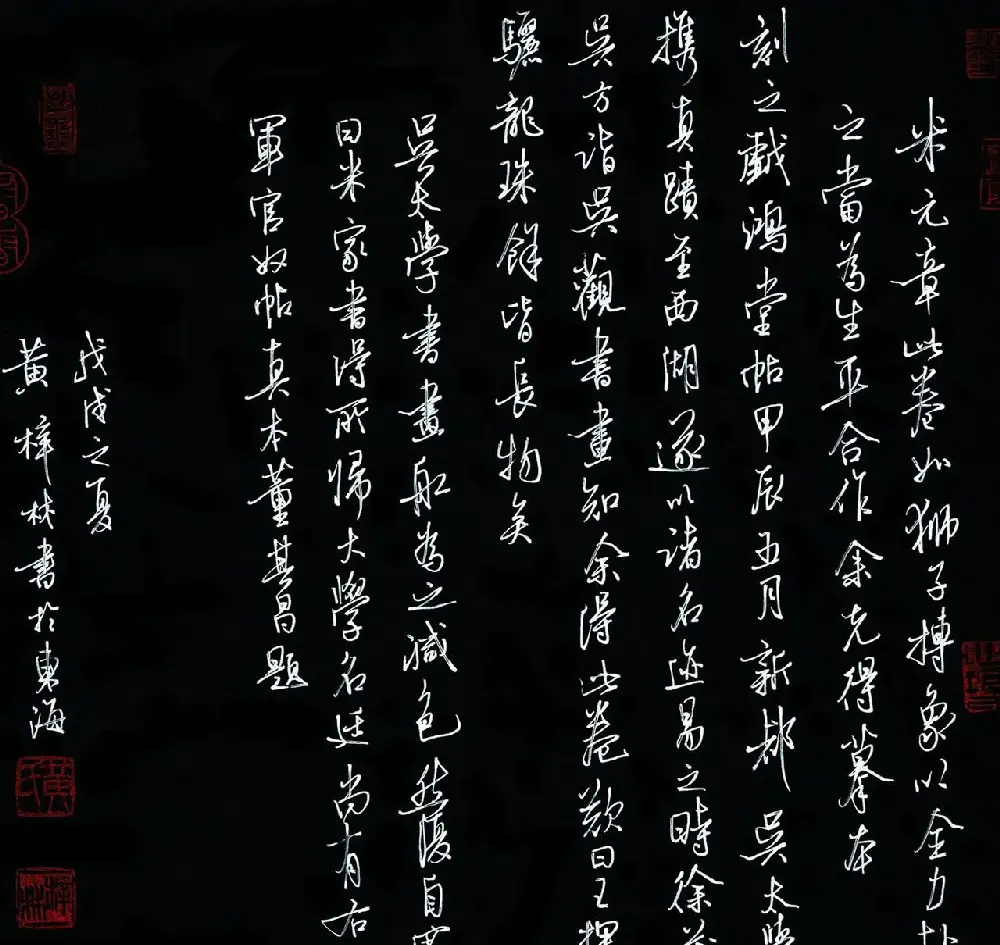 米元章此卷如獅子搏象以全力赴
之當為生平合作余先得摹本
刻之戲鴻堂帖甲辰五月新都吳太學
攜真蹟至西湖遂以諸名迹易之時徐
吳方詣吳觀書畫知余得此卷歎曰
驪龍珠餘皆長物矣
吳太學書畫船為之減色然復自
曰米家書得所歸大學名廷尚有右
軍官奴帖真本董其昌題
戊戌之夏
黃梓林書於東海
黃氏
梓林